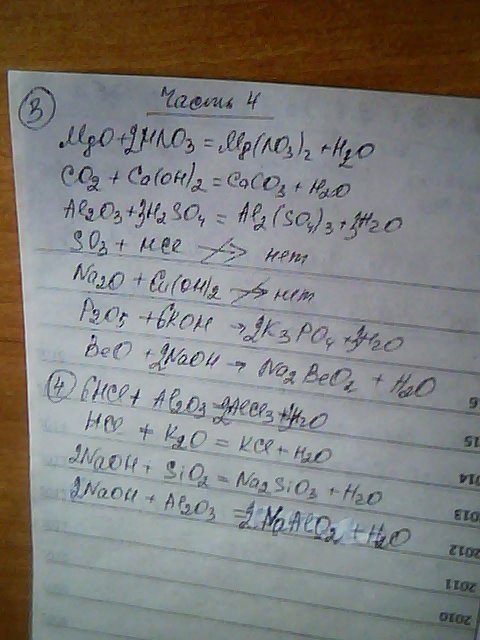 Часть 4
3
MgO + 2HNO3 = Mg(NO3)2 + H2O
CO2 + Ca(OH)2 = CaCO3 + H2O
Al2O3 + 3H2SO4 = Al2(SO4)3 + 3H2O
SO3 + HCl -/-> нет
Na2O + Cu(OH)2 -/-> нет
P2O5 + 6KOH → 2K3PO4 + 3H2O
BeO + 2NaOH → Na2BeO2 + H2O
4 6HCl + Al2O3 = 2AlCl3 + 3H2O
HCl + K2O = KCl + H2O
2NaOH + SiO2 = Na2SiO3 + H2O
2NaOH + Al2O3 = 2NaAlO2 + H2O
6
15
2014
2013
2012
2011
2010